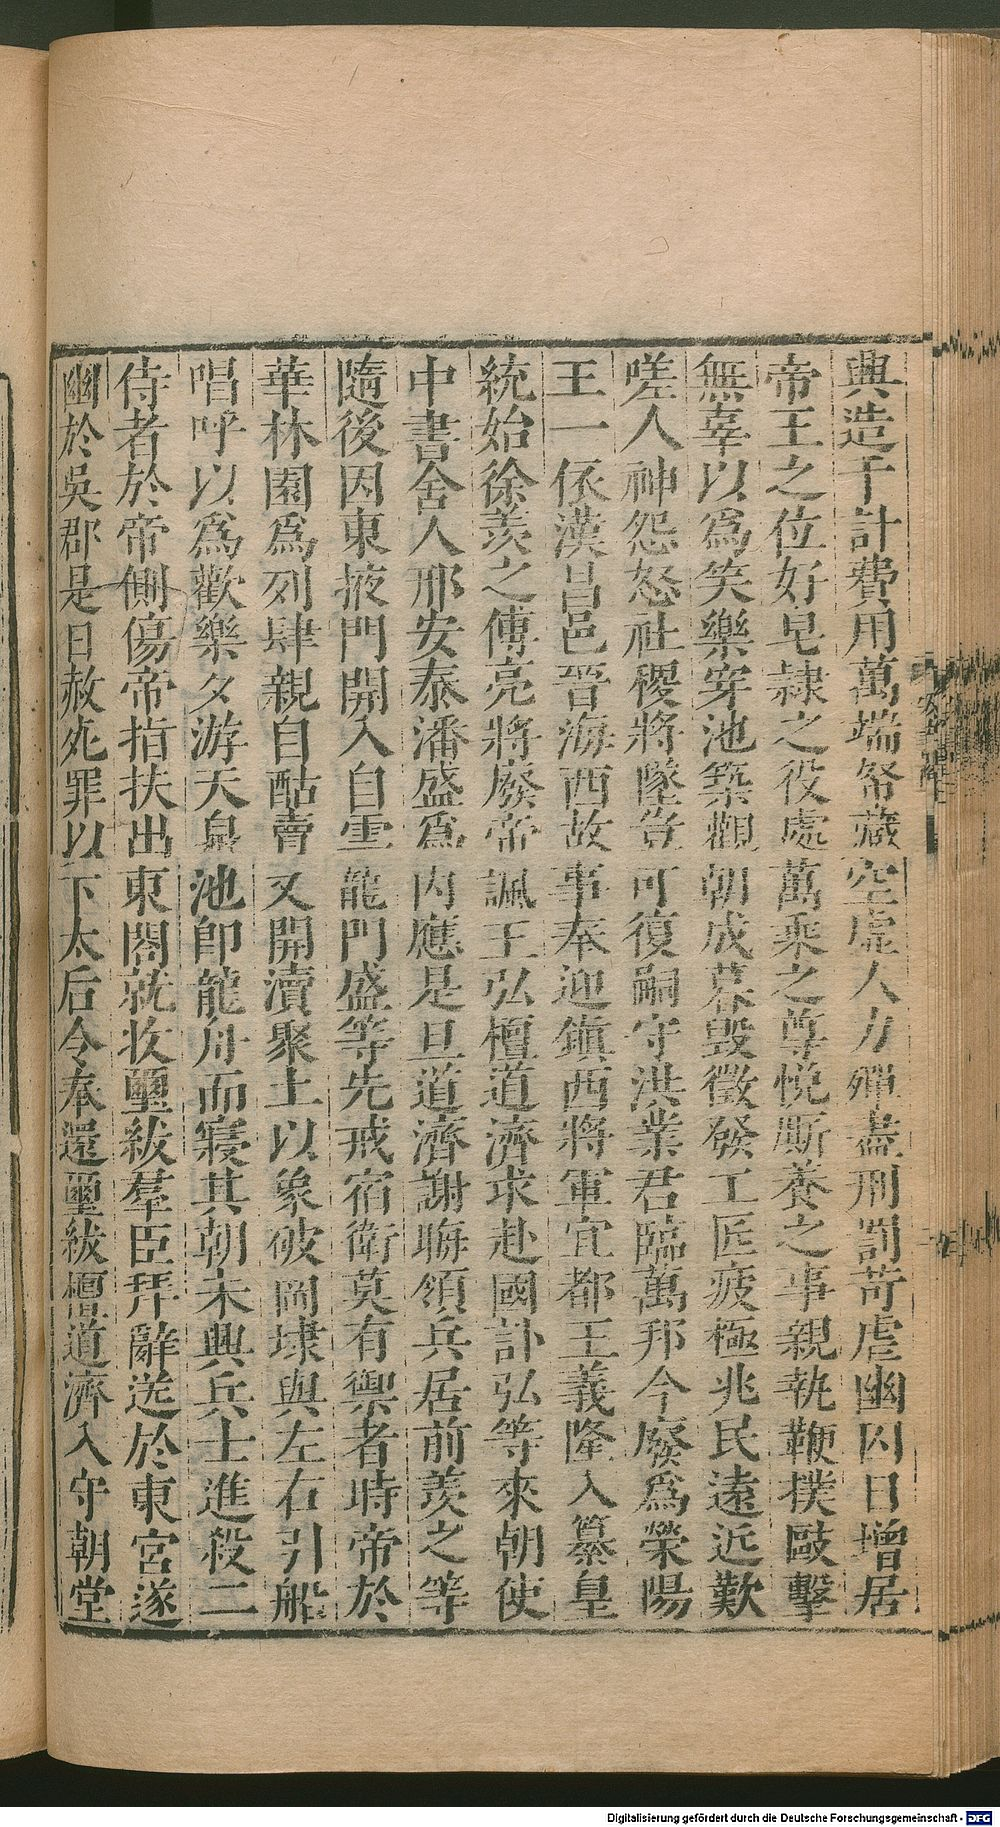 興造千計費用萬端帑藏空虛人力殫盡刑罰苛虐幽囚日增居
帝王之位好皁隸之役處萬乘之尊悅厮養之事親執鞭撲毆擊
無辜以爲笑樂穿池築觀朝成暮毀徵發工匠疲極兆民遠近歎
嗟人神怨怒社稷將墜豈可復嗣守洪業君臨萬邦今廢爲滎陽
王一依漢昌邑晉海西故事奉迎鎮西將軍宜都王義隆入纂皇
統始徐羡之傅亮將廢帝諷王弘檀道濟求赴國訃弘等來朝使
中書舍人邢安泰潘盛爲内應是旦道濟謝晦領兵居前羡之等
隨後因東掖門開入自雲龍門盛等先戒宿衛莫有禦者時帝於
華林園爲列肆親自酤賣又開瀆聚土以象破岡埭與左右引船
唱呼以爲歡樂夕游天泉池卽龍舟而寢其朝未興兵士進殺二
侍者於帝側傷帝指扶出東閤就收璽紱羣臣拜辭送於東宮遂
幽於吳郡是日赦死罪以下太后令奉還璽紱檀道濟入守朝堂
Digitalisierung gefördert durch die Deutsche Forschungsgemeinschaft - DFG